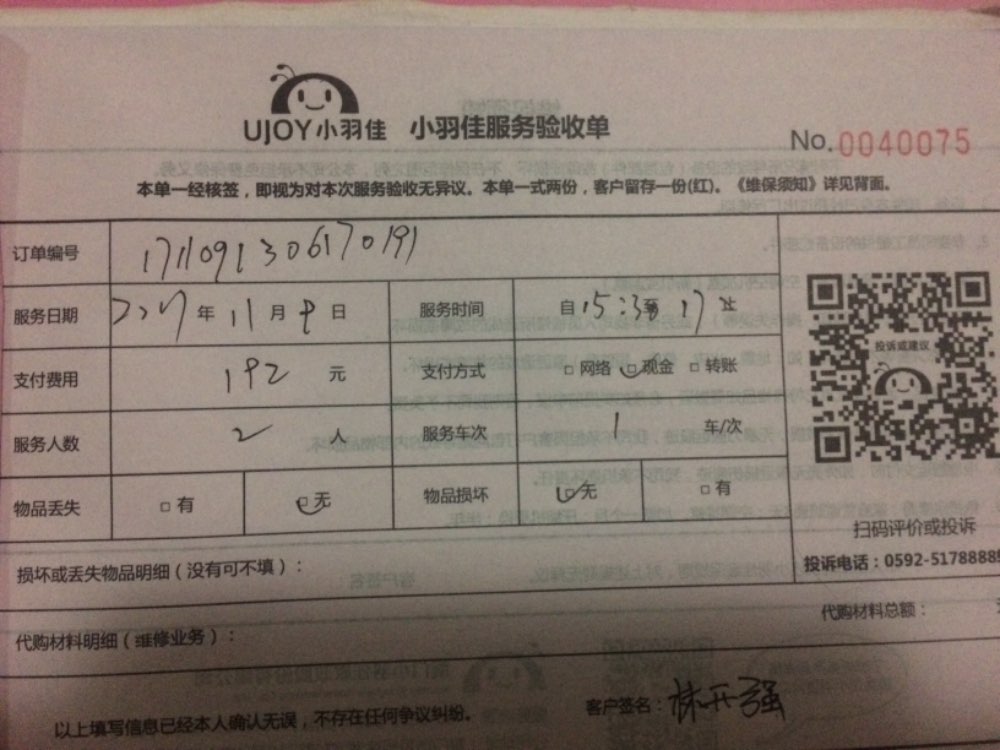 UJOY小羽佳 小羽佳服务验收单
No.0040075
本单一经核签，即视为对本次服务验收无异议。本单一式两份，客户留存一份(红)。《维保须知》详见背面。
订单编号 1711091306170191
服务日期 2017年11月9日 服务时间 自15:3至17
支付费用 192 元 支付方式 网络 现金 转账
服务人数 2 人 服务车次 1 车/次
物品丢失 有 无 物品损坏 无 有
投诉或建议
扫码评价或投诉
投诉电话：0592-5178888
损坏或丢失物品明细（没有可不填）：
代购材料明细（维修业务）： 代购材料总额：
以上填写信息已经本人确认无误，不存在任何争议纠纷。 客户签名：林开强